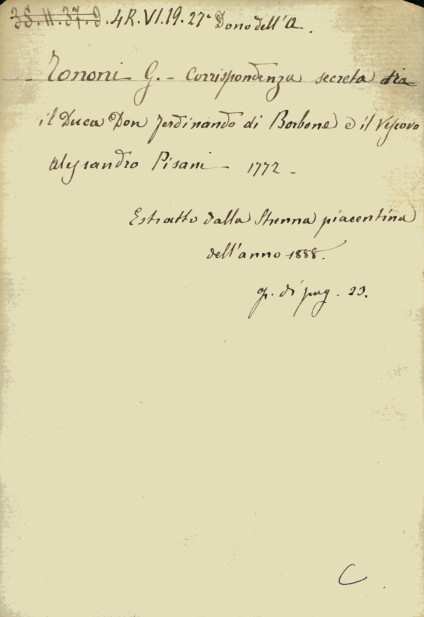 35.II.37.9 .4R.VI.19.27ª Dono dell'A.
Tononi G. - Corrispondenza secreta tra
il Duca Don Ferdinando di Borbone e il Vescovo
Alessandro Pisani - 1772 -
Estratto dalla Strenna piacentina
dell'anno 1888.
op. di pag. 23.
C